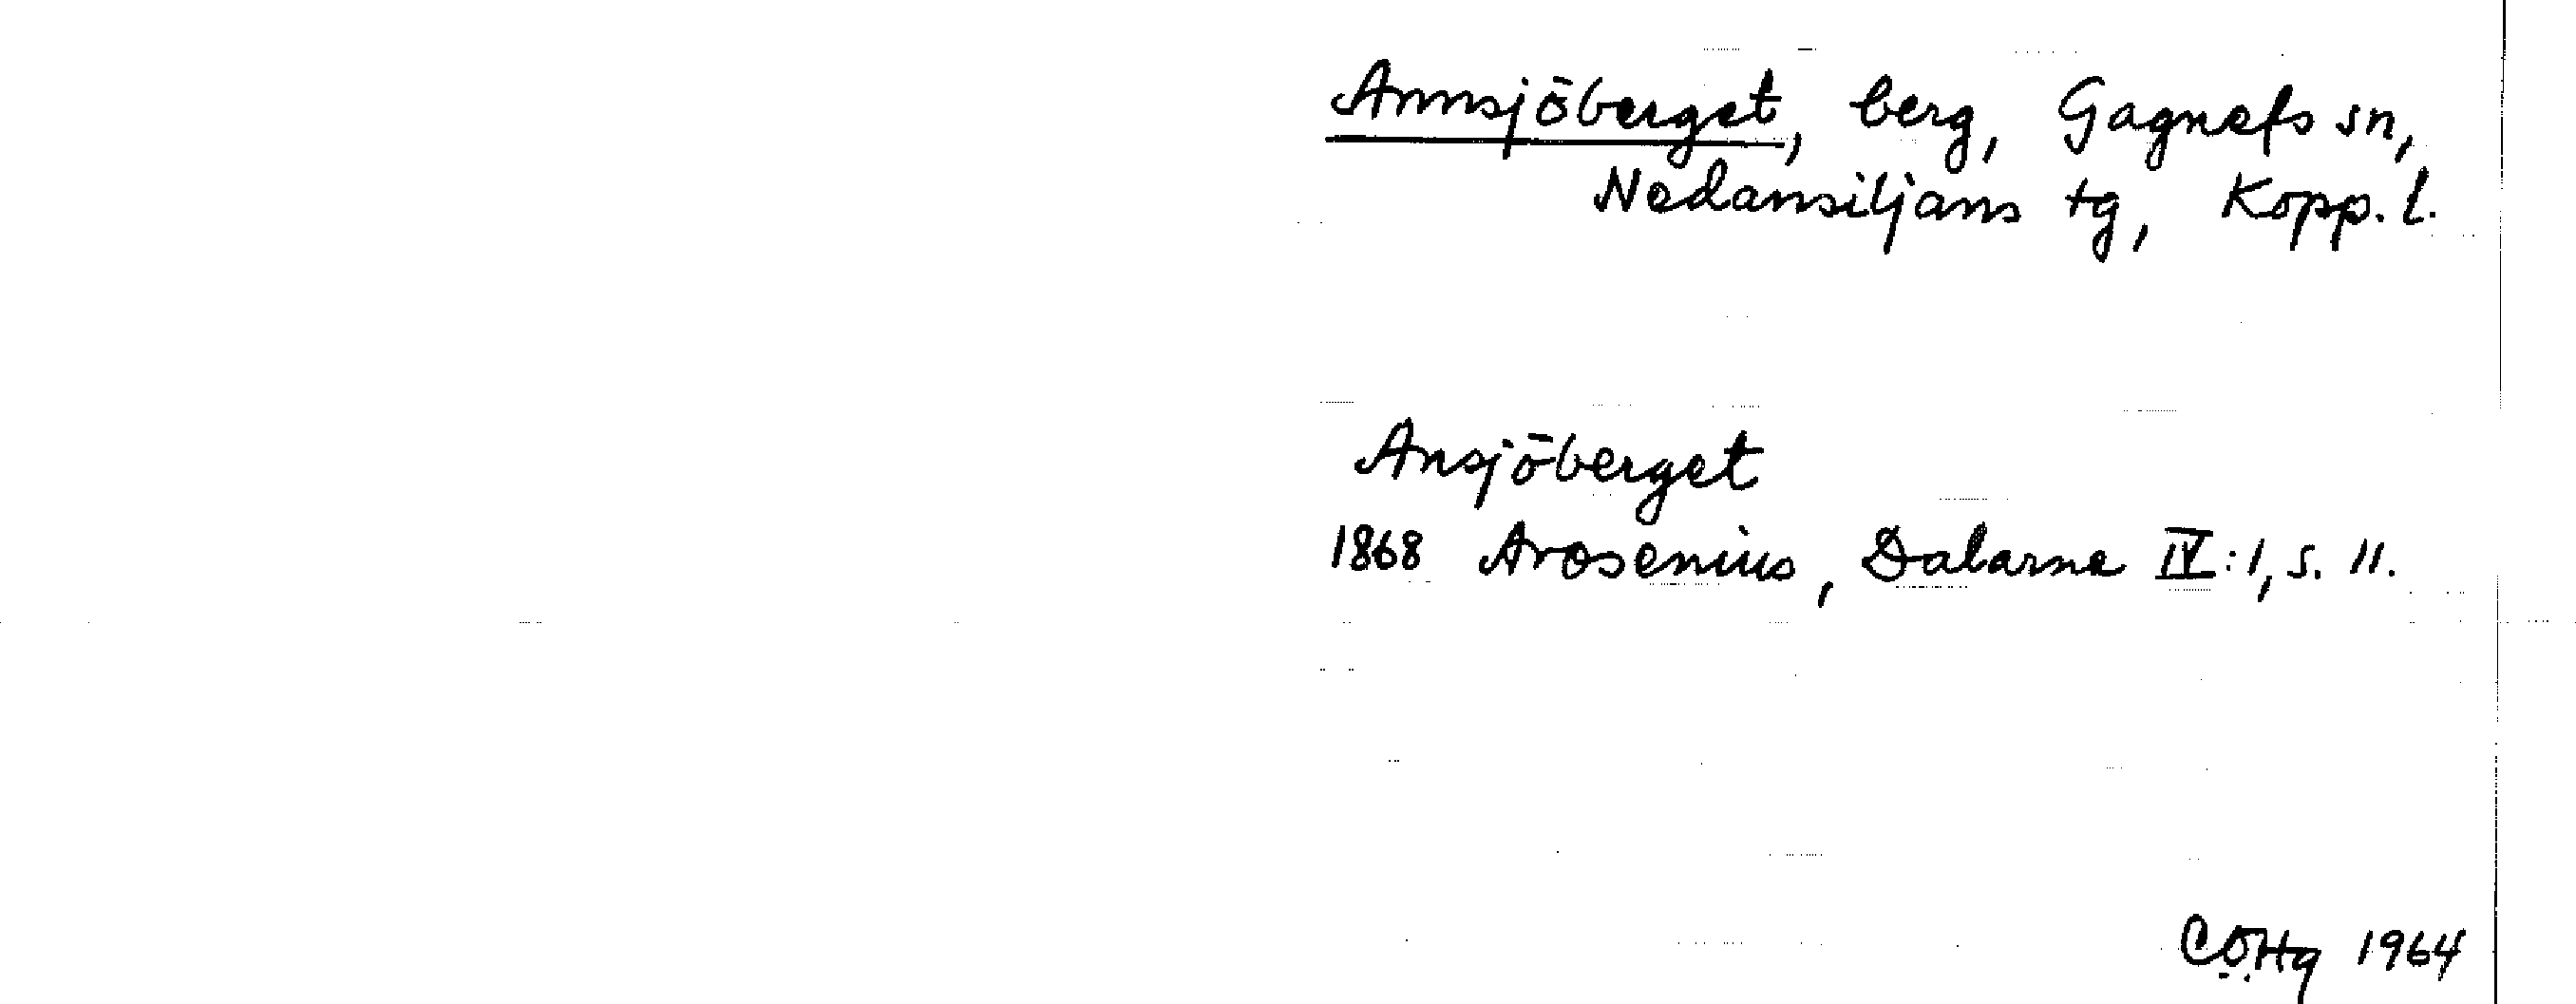 Annsjöberget, berg, Gagnefs sn,
Nedansiljans tg, Kopp. l.
Ansjöberget
1868 Arosenius, Dalarne IV:1, s. 11.
CÖHg 1964